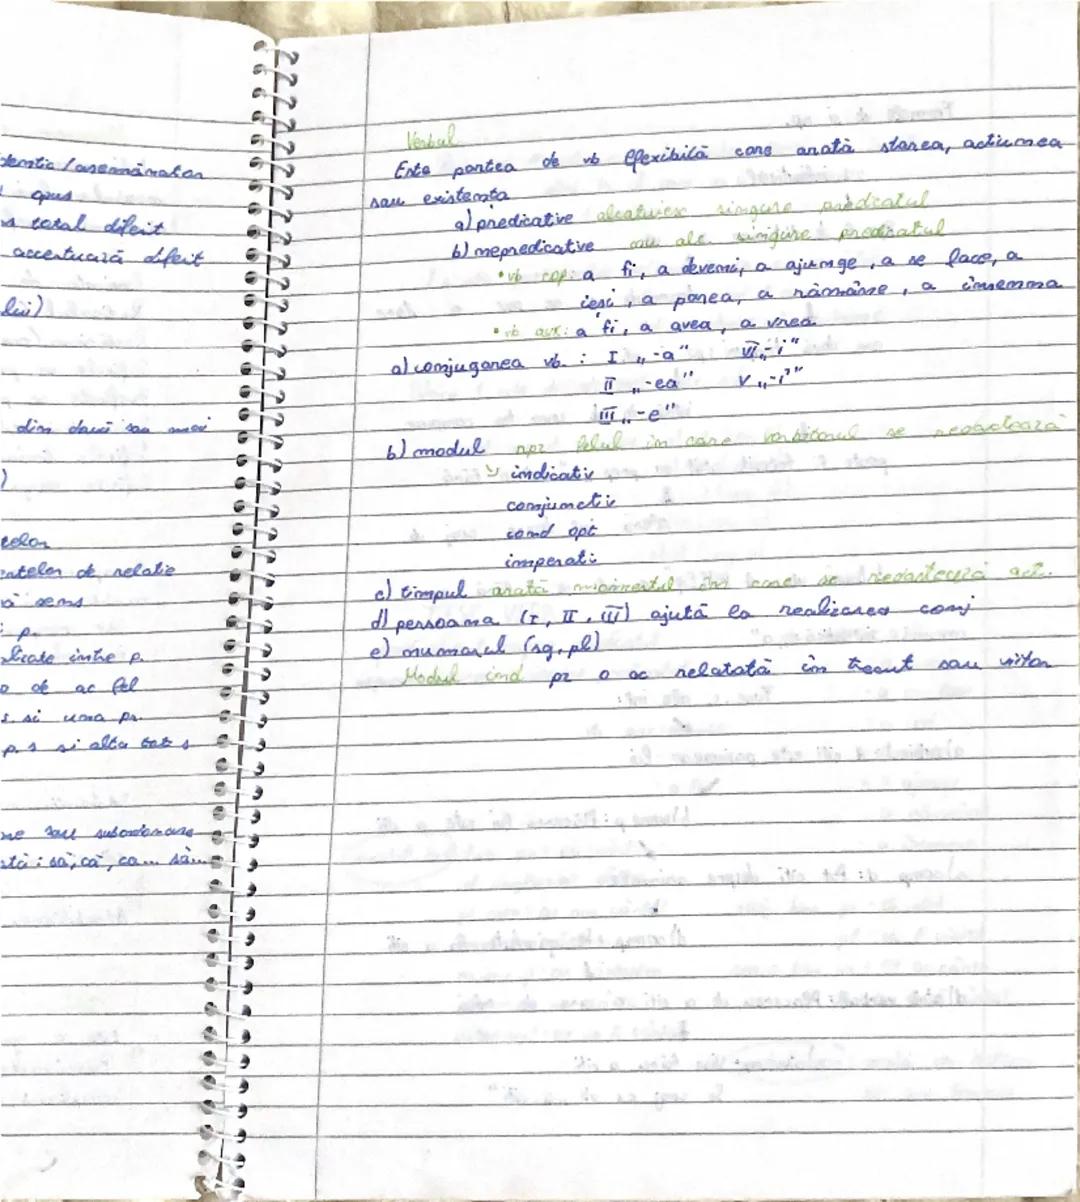 identic/asemănător
opus
total diferit
accentuează diferit
lui)
din dacă sau
)
telor
de relatie
sens
p.
intre p.
o de ac fel
s. si una pr.
p. s si alta
sau subordonare
: să, că, ca... să...
Verbul
Este partea de vb flexibilă care arată starea, actiunea
sau existenta
a) predicative alcatuiesc singure predicatul
b) nepredicative nu alc singure predicatul
• vb cop: a fi, a deveni, a ajunge, a se face, a
iesi, a părea, a rămâne, a însemna
• vb aux: a fi, a avea, a vrea
a) conjugarea vb. : I „-a" VI „-î"
II „-ea" V „-i"
III „-e"
b) modul felul în care vorbitorul se
indicativ
conjunctiv
cond opt
imperati
c) timpul arată momentul în care se act.
d) persoana (I, II, III) ajută la realizarea conj
e) numarul (sg, pl)
Modul ind pz o ac relatată în trecut sau viitor